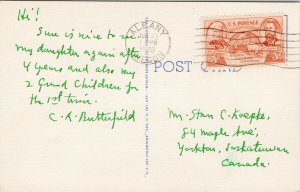 Hi!
Sure is nice to see
my daughter again after
4 years and also my
2 Grand Children for
the 1st time.
C. R. Butterfield
ALBANY
U.S. POSTAGE
POST CARD
Mr. Stan C. Koepke,
84 Maple Ave,
Yorkton, Saskatchewan
Canada.